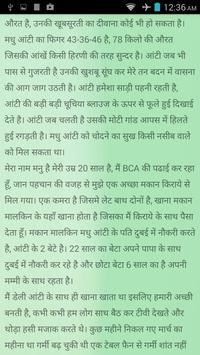 12:36 AM
औरत है, उनकी खूबसूरती का दीवाना कोई भी हो सकता है।
मधु आंटी का फिगर 43-36-46 है, 78 किलो की औरत
जिसकी आंखें किसी हिरणी की तरह सुन्दर है। आंटी जब भी
पास से गुजरती है उनकी खुशबू सूंघ कर मेरे तन बदन में वासना
की आग जाग उठती है। आंटी हमेशा साड़ी पहनी रहती है,
आंटी की बड़ी बड़ी चूचिया ब्लाउज के ऊपर से फूले हुई दिखाई
देते है। आंटी जब चलती है उसकी मोटी गांड आपस में हिलते
हुई रगड़ती है। मधु आंटी को चोदने का सुख किसी नसीब वाले
को मिल सकता था।
मेरा नाम मनु है मेरी उम्र 20 साल है, मैं BCA की पढाई कर रहा
हूँ, जान पहचान की वजह से मुझे एक अच्छा मकान किराये से
मिल गया। एक कमरा है जिसमे लेट बाथ दोनों है, खाना मकान
मालकिन के यहाँ खाना होता है जिसका मैं किराये के साथ पैसा
देता हूँ। मकान मालकिन मधु आंटी के पति दुबई में नौकरी करते
है, आंटी के 2 बेटे है। 22 साल का बेटा अपने पापा के साथ
दुबई में नौकरी कर रहे है और छोटा बेटा 6 साल का है अपनी
मम्मी के साथ रहता है।
मैं डेली आंटी के साथ ही खाना खाता था इसलिए हमारी अच्छी
बनती है, कभी कभी हम लोग साथ बैठ कर टीवी देखते और
थोड़ा हसी मजाक करते थे। कुछ महीने निकल गए मार्च का
महीना था गर्मी बढ़ चुकी थी एक टेबल फैन से गर्मी शांत नहीं